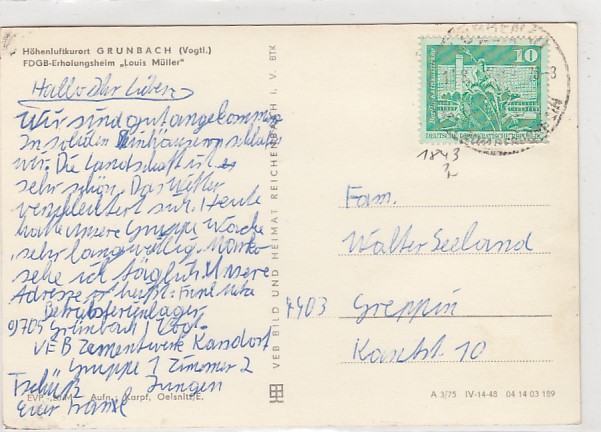 Höhenluftkurort GRUNBACH (Vogtl.)
FDGB-Erholungsheim „Louis Müller"
Hallo Ihr Lieben
Wir sind gut angekommen
In soliden schlafen
wir. Die Landschaft ist es
sehr schön. Das Wetter
verschlechtert sich. Heute
hatte unsere Gruppe Wache
sehr langweilig.
sehe ich täglich. Unsere
Adresse heißt:
Betriebsferienlager
9705 Grünbach / Vogt.
VEB Zementwerk Karsdorf
Gruppe 1 Zimmer 2
Tschüß Jungen
Euer Frank
EVP Aufn.: Karpf, Oelsnitz/E.
VEB BILD UND HEIMAT REICHENBACH I. V. BTK
10
DEUTSCHE DEMOKRATISCHE REPUBLIK
1843
Fam.
Walter Seeland
4403 Greppin
Kantstr. 10
A 3/75 IV-14-48 04 14 03 189